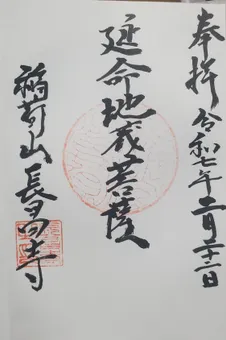 奉拝 令和七年二月二十二日
延命地蔵菩薩
稲荷山 長昌寺